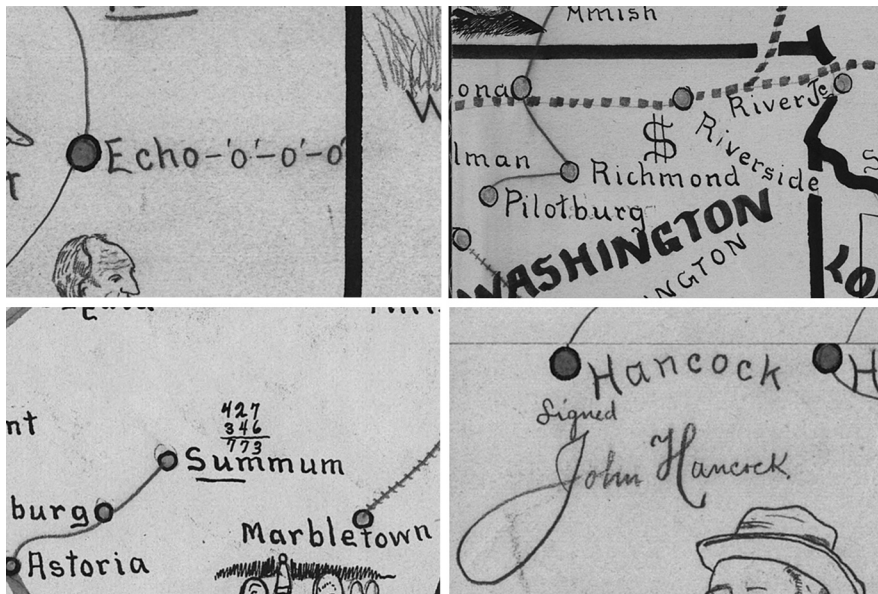 Echo-'o'-o'-o'
Mmish
ona
RiverJc
Riverside
$
lman
Richmond
Pilotburg
WASHINGTON
NGTON
427
346
773
nt
Summum
burg
Marbletown
Astoria
Hancock
H
Signed
John Hancock